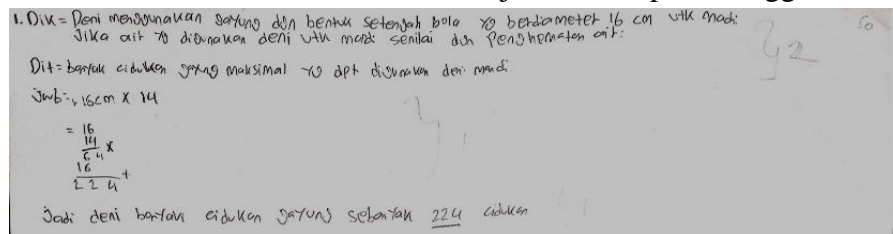 1. Dik = Deni menggunakan gayung dgn bentuk setengah bola yg berdiameter 16 cm utk mandi
Jika air yg digunakan deni utk mandi senilai dgn Penghematan air:
Dit = banyak cidukan gayung maksimal yg dpt digunakan deni mandi
Jwb = 16cm x 14
= 16
14 x
64
16 +
224
Jadi deni banyak cidukan gayung sebanyak 224 cidukan